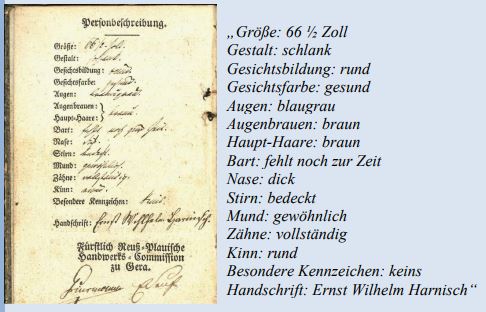 Personbeschreibung.
Größe: 66 ½ Zoll.
Gestalt: schlank
Gesichtsbildung: rund
Gesichtsfarbe: gesund
Augen: blaugrau
Augenbrauen:
Haupt-Haare: braun
Bart: fehlt noch zur Zeit
Nase: dick
Stirn: bedeckt
Mund: gewöhnlich
Zähne: vollständig
Kinn: rund
Besondere Kennzeichen: keins
Handschrift: Ernst Wilhelm Harnisch
Fürstlich Reuß-Plauische
Handwerks-Commission
zu Gera.
„Größe: 66 ½ Zoll
Gestalt: schlank
Gesichtsbildung: rund
Gesichtsfarbe: gesund
Augen: blaugrau
Augenbrauen: braun
Haupt-Haare: braun
Bart: fehlt noch zur Zeit
Nase: dick
Stirn: bedeckt
Mund: gewöhnlich
Zähne: vollständig
Kinn: rund
Besondere Kennzeichen: keins
Handschrift: Ernst Wilhelm Harnisch“